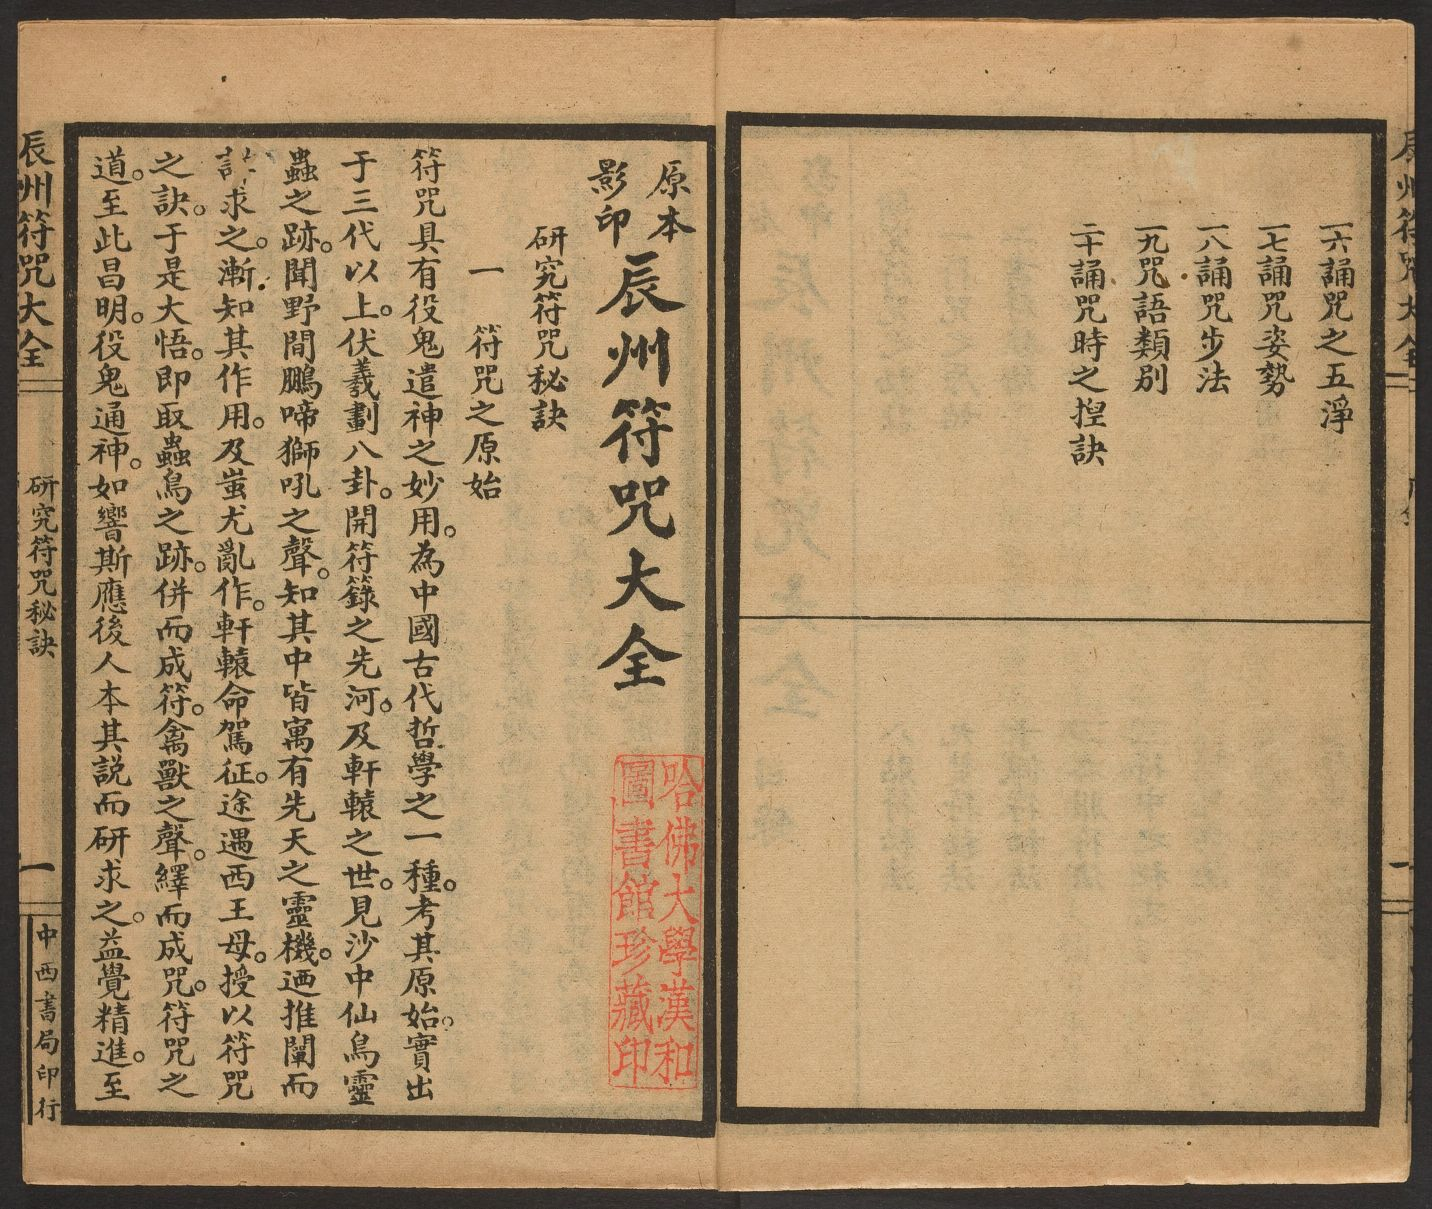 一六誦咒之五淨
一七誦咒姿勢
一八誦咒步法
一九咒語類別
二十誦咒時之揑訣
原本
影印
辰州符咒大全
哈佛大學漢和
圖書館珍藏印
研究符咒秘訣
一 符咒之原始
符咒具有役鬼遣神之妙用。為中國古代哲學之一種。考其原始。實出
于三代以上。伏羲劃八卦。開符籙之先河。及軒轅之世。見沙中仙鳥靈
蟲之跡。聞野間鵬啼獅吼之聲。知其中皆寓有先天之靈機。迺推闡而
求之。漸知其作用。及蚩尤亂作。軒轅命駕征。途遇西王母。授以符咒
之訣。于是大悟。即取蟲鳥之跡。併而成符。禽獸之聲。繹而成咒。符咒之
道。至此昌明。役鬼通神。如響斯應後人本其説而研求之。益覺精進。至
辰州符咒大全
研究符咒秘訣
一
中西書局印行